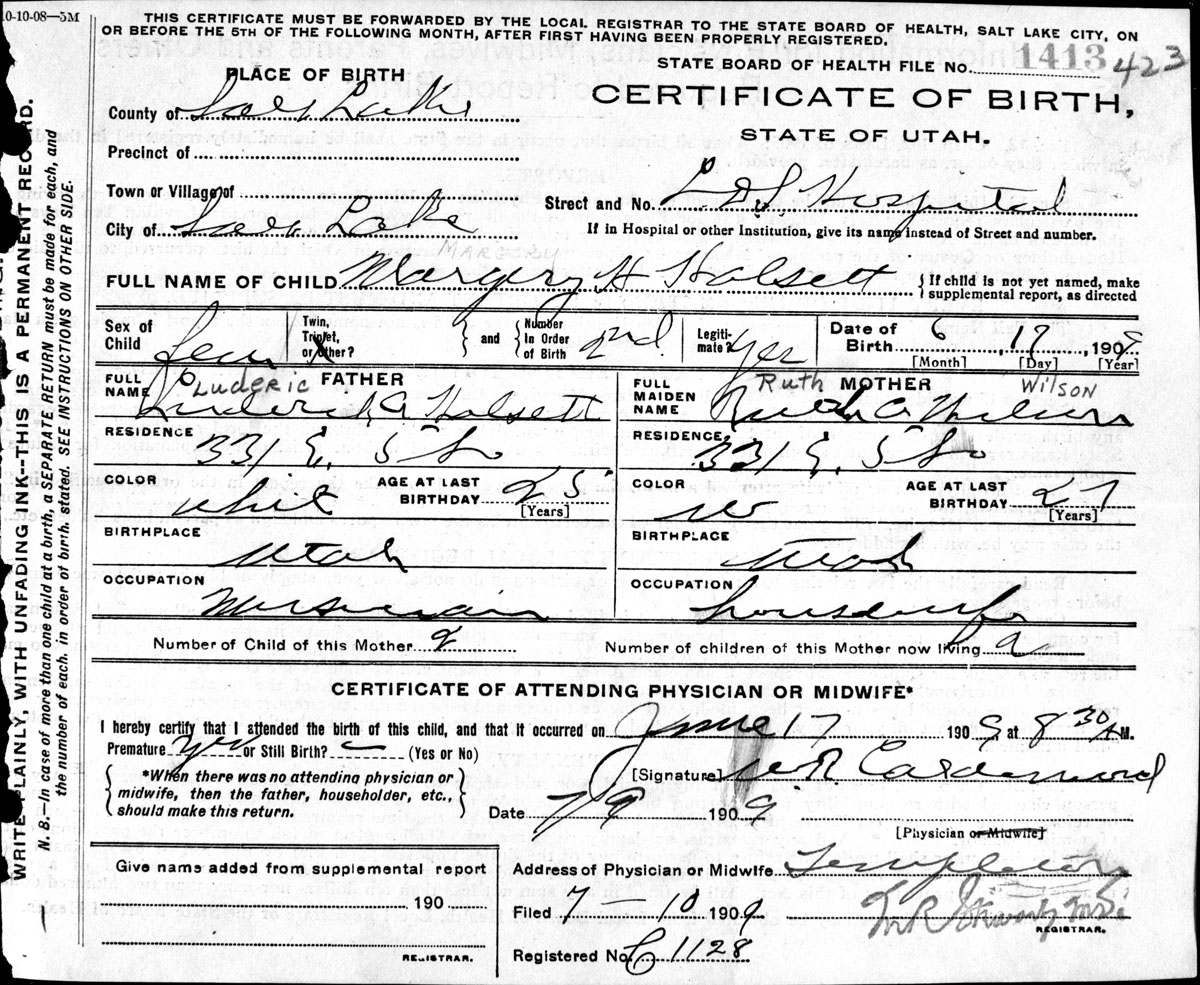 10-10-08—5M
THIS CERTIFICATE MUST BE FORWARDED BY THE LOCAL REGISTRAR TO THE STATE BOARD OF HEALTH, SALT LAKE CITY, ON
OR BEFORE THE 5TH OF THE FOLLOWING MONTH, AFTER FIRST HAVING BEEN PROPERLY REGISTERED.
STATE BOARD OF HEALTH FILE No. 1413 423
PLACE OF BIRTH
CERTIFICATE OF BIRTH,
STATE OF UTAH.
County of Salt Lake
Precinct of
Town or Village of
Street and No. L D S Hospital
City of Salt Lake
If in Hospital or other Institution, give its name instead of Street and number.
MARGERY
FULL NAME OF CHILD Margery H Halsett
{If child is not yet named, make supplemental report, as directed
Sex of Child Fem
Twin, Triplet, or other? X and Number In Order of Birth 2nd
Legitimate? Yes
Date of Birth 6, 17, 1909
[Month] [Day] [Year]
FULL NAME FATHER
Luderic
Luderick A Halsett
FULL MAIDEN NAME MOTHER
Ruth Wilson
Ruth A Wilson
RESIDENCE 331 E. 5 So
RESIDENCE 331 E. 5 So
COLOR White
AGE AT LAST BIRTHDAY 25
[Years]
COLOR W
AGE AT LAST BIRTHDAY 27
[Years]
BIRTHPLACE Utah
BIRTHPLACE Utah
OCCUPATION Musician
OCCUPATION housewife
Number of Child of this Mother 2
Number of children of this Mother now living 2
CERTIFICATE OF ATTENDING PHYSICIAN OR MIDWIFE*
I hereby certify that I attended the birth of this child, and that it occurred on June 17 1909 at 8 30 A M.
Premature yes or Still Birth? — (Yes or No)
*When there was no attending physician or midwife, then the father, householder, etc., should make this return.
[Signature]
Date 7/9 1909
[Physician or Midwife]
Give name added from supplemental report
190
REGISTRAR.
Address of Physician or Midwife Templeton
Filed 7—10 1909
REGISTRAR.
Registered No. C 1128
WRITE PLAINLY, WITH UNFADING INK—THIS IS A PERMANENT RECORD.
N. B.—In case of more than one child at a birth, a SEPARATE RETURN must be made for each, and
the number of each, in order of birth, stated. SEE INSTRUCTIONS ON OTHER SIDE.